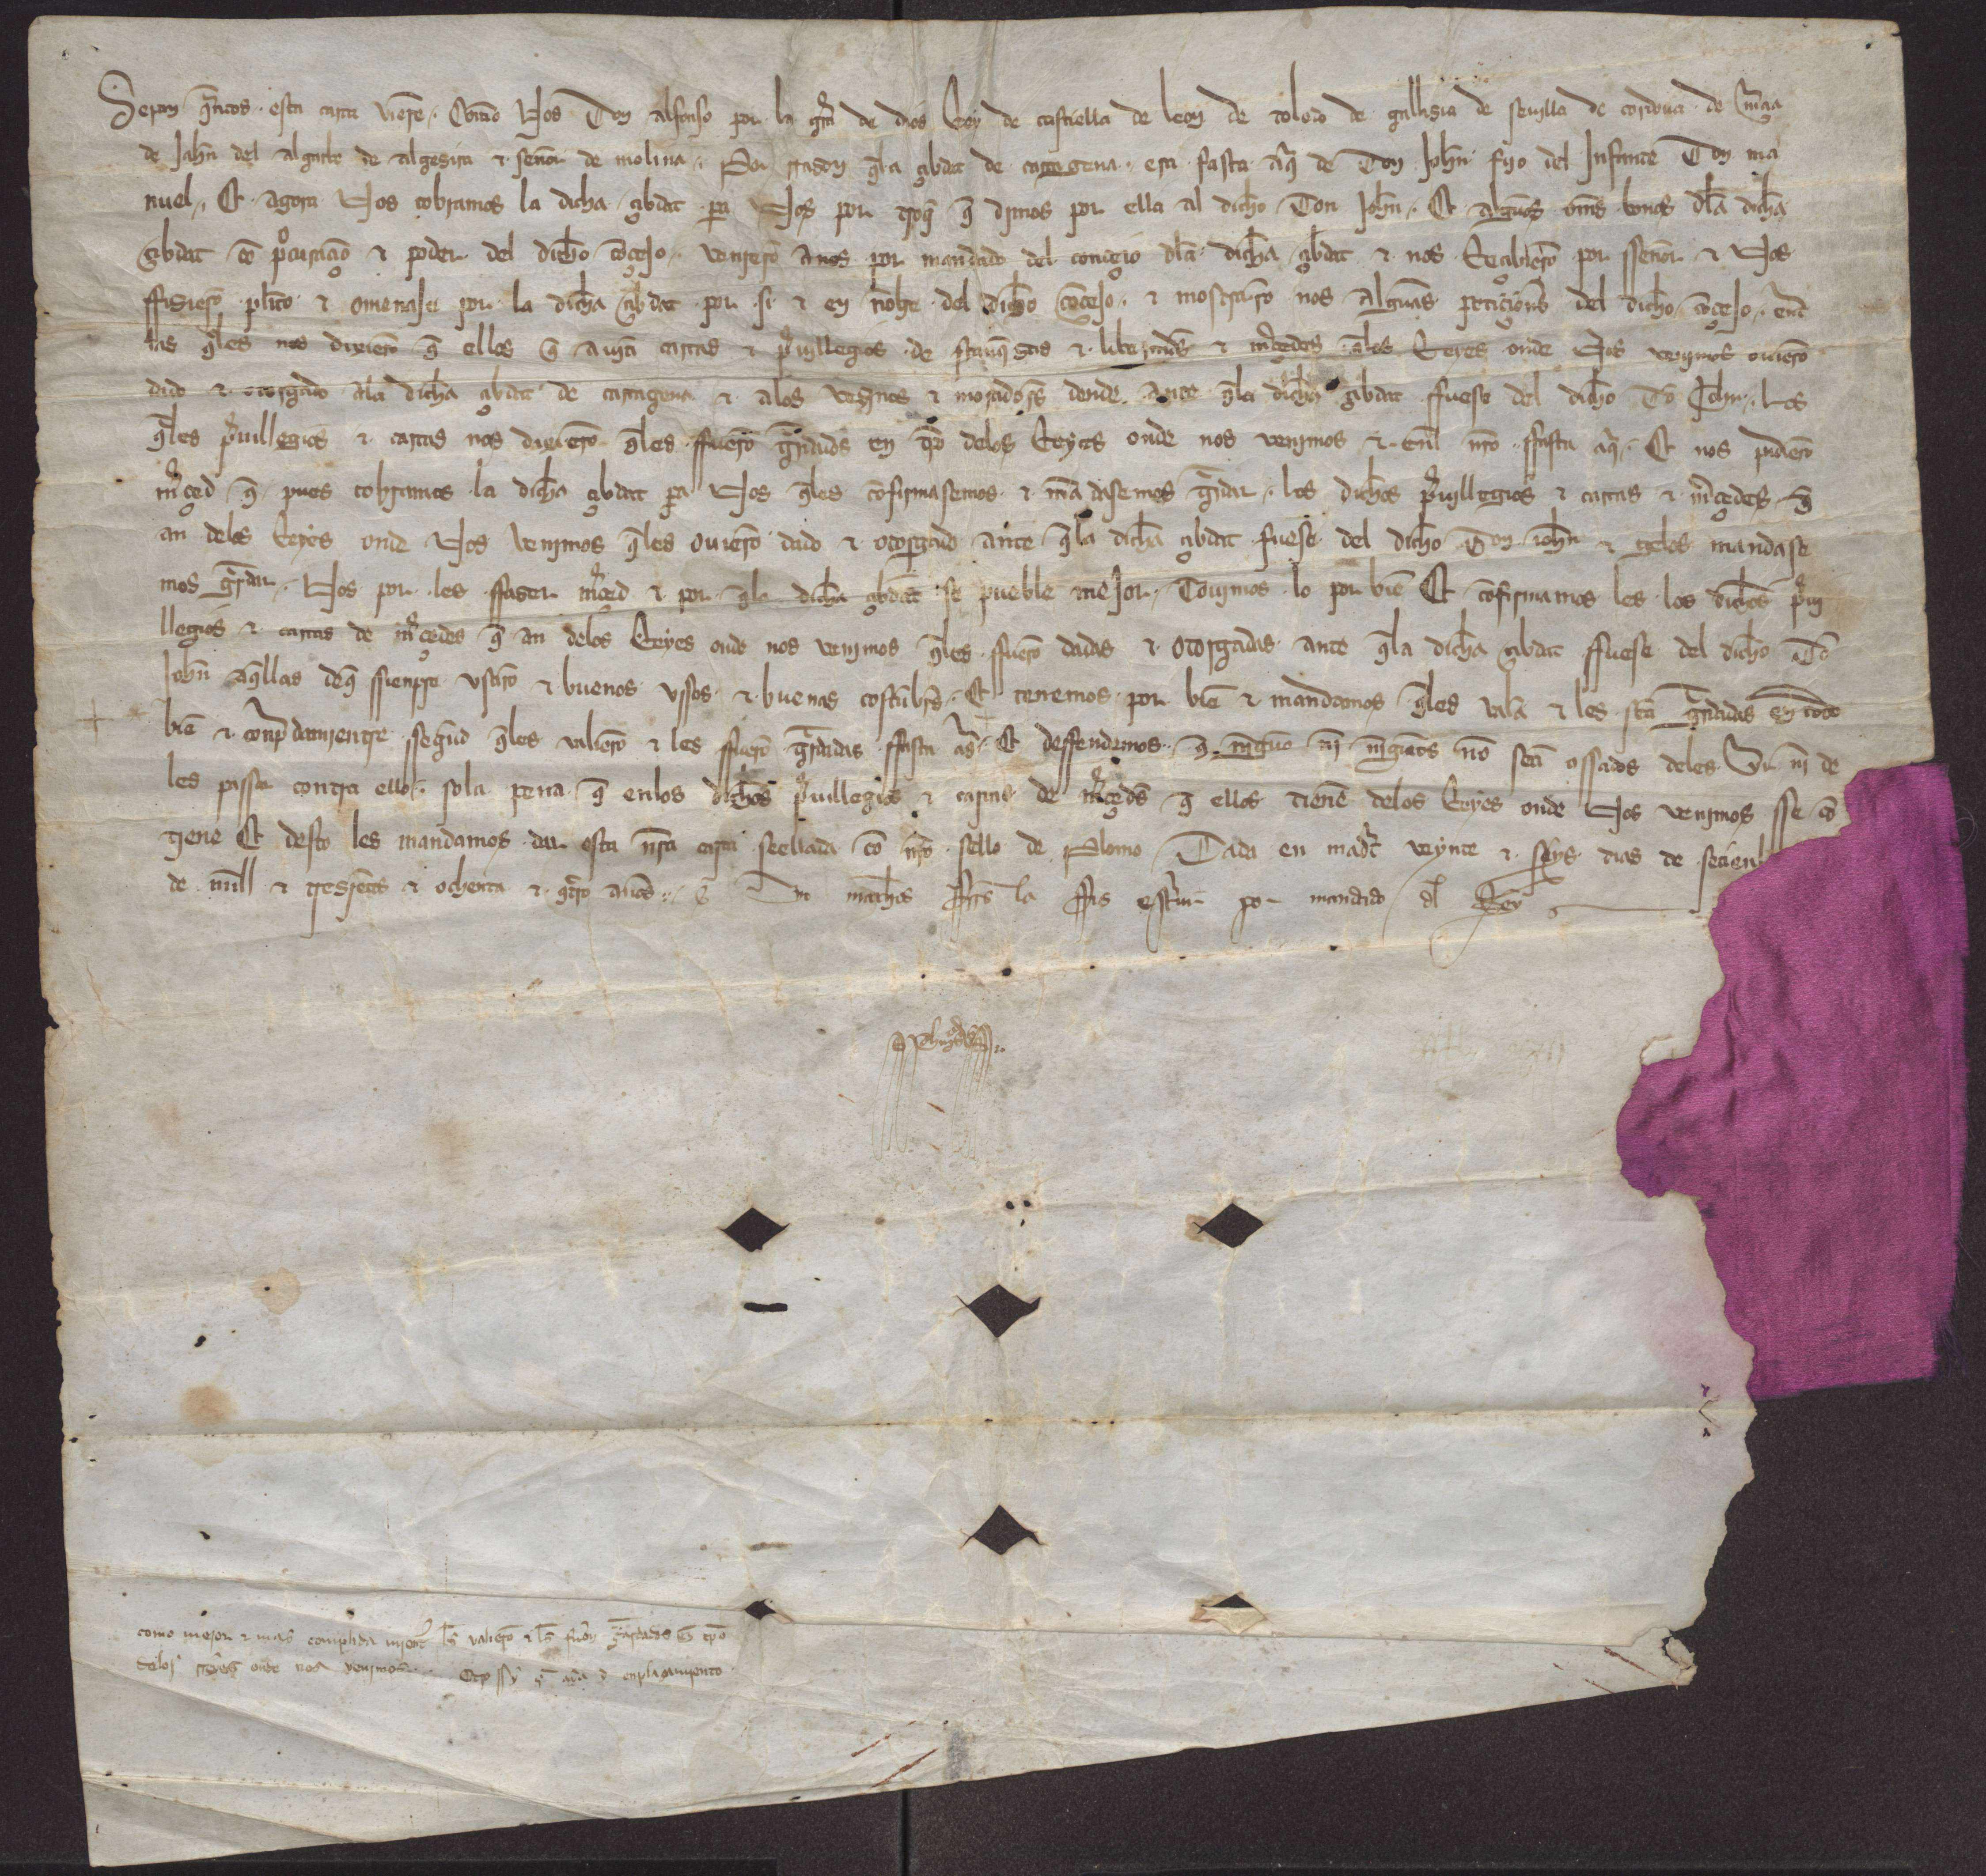 Sepan quantos esta carta vierē Como Nos Don alfonso por la grā de dios Rey de castiella de leon de toledo de gallisia de seuilla de cordoua de Murçia
de Jahn del algarbe de algesira & señor de molina Por rrason q̄la çibdat de cartagena era fasta aq̄ de Don Johñ fijo del Infante Don ma
nuel Et agora Nos cobramos la dicha çibdat pa Nos por troq̄ q̄ dimos por ella al dicho Don Johñ Et algūos om̄s bonos dla dicha
çibdat cō procuraçiō & poder del dicho cōçejo venierō anos por mandado del conçejo dla dicha çibdat & nos Reçibierō por sseñor & Nos
ffisierō pleito & omenaje por la dicha çibdat por si & en nōbre del dicho cōçejo & mostrarō nos algūas petiçion̄s del dicho cōçejo ent̄
las q̄les nos dixierō q̄ ellos q̄ auiā cartas & preuillegios de franq̄sas & libertads & merçedes q̄les Reyes onde Nos venimos ouierō
dado & otorgado ala dicha çibdat de cartagena & alos vesinos & moradors dende ante q̄la dicha çibdat ffuese del dicho Dō Johñ Los
q̄les preuillegios & cartas nos dixierō q̄les ffuerō guardados en tpō delos Reyes onde nos venimos & enl nr̄o ffasta aq̄ Et nos pidierō
merçed q̄ pues cobramos la dicha çibdat pa Nos q̄les cōfirmasemos & mādasemos guardar los dichos preuillegios & cartas & merçedes q̄
an delos Reyes onde Nos venimos q̄les ouierō dado & otorgado ante q̄la dicha çibdat fuese del dicho Don iohñ & gelos mandase
mos guardar Nos por les ffaser merçed & por q̄la dicha çibdat se pueble mejor Touimos lo por biē Et cōfirmamos les los dichos preui
llegios & cartas de merçedes q̄ an delos Reyes onde nos venimos q̄les ffuerō dadas & otorgadas ante q̄la dicha çibdat ffuese del dicho Dō
Johñ aq̄llas deq̄ ssienpre vsarō & buenos vssos & buenas costūbrs Et tenemos por biē & mandamos q̄les valā & les seā guardadas en todo
biē & conplidamientre ssegūd q̄les valierō & les ffuerō guardadas ffasta aq̄ Et deffendemos q̄ ningūo nī ningūos nō seā ossados deles yr nī de
les passar contra ello sola pena q̄ enlos dichos preuillegios & cartas de merçeds q̄ ellos tienē delos Reyes onde Nos venimos sse cō
tiene Et desto les mandamos dar esta nr̄a carta seellada cō nr̄o sello de Plomo Dada en madrit veynte & seys dias de setienb
de mill & tresientos & ochenta & quatro anos yo matheos fferrs la ffis escriuir por mandado dl Rey
como mejor & mas conplida miente les valierō & les fuerō guardadas en tpō
delos rreyes onde nos venimos Otro ssy q̄ aya d enplazamiento